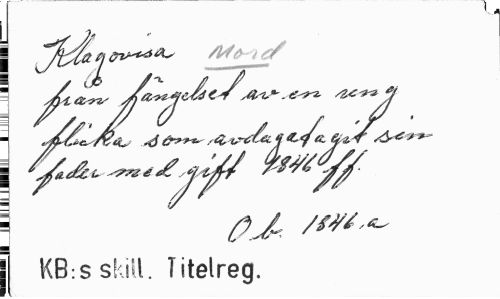 Klagovisa Mord
från fängelset av en ung
flicka som avdagatagit sin
fader med gift 1846 ff.
O b. 1846.a
KB:s skill. Titelreg.